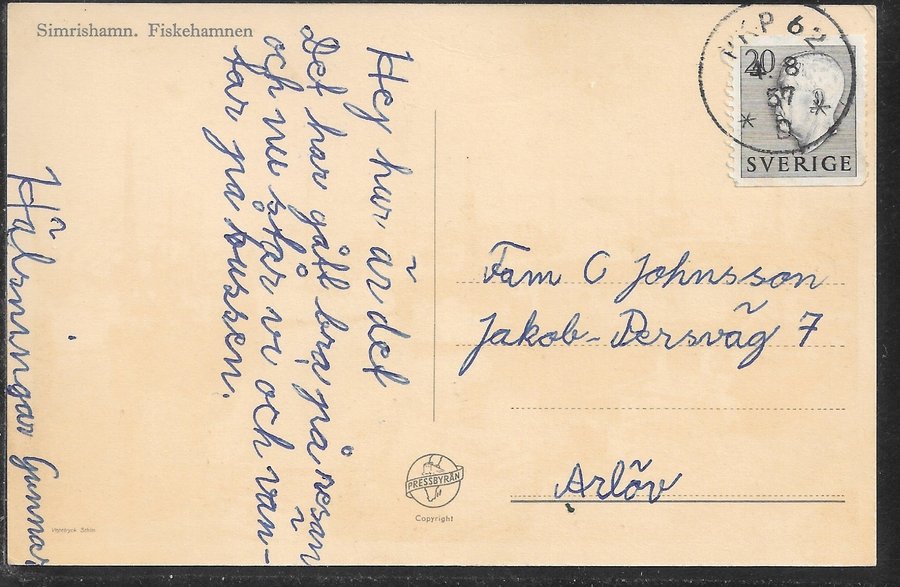 Simrishamn. Fiskehamnen
Hej hur är det
Det har gått bra på resan
och nu står vi och vän-
tar på bussen.
Hälsningar Gunnar
PKP 62
4. 8
57
D
20
SVERIGE
Fam C Johnsson
Jakob-Persväg 7
Arlöv
PRESSBYRÅN
Copyright